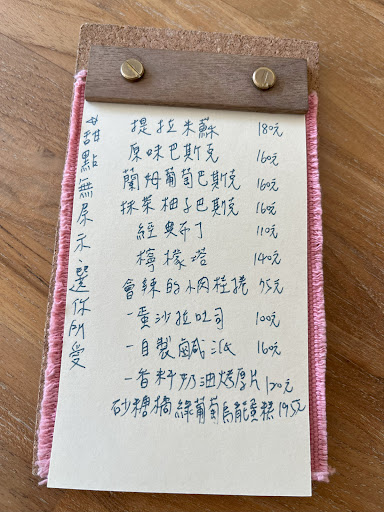 提拉米蘇 180元
原味巴斯克 160元
蘭姆葡萄巴斯克 160元
抹茶柚子巴斯克 160元
經典布丁 110元
檸檬塔 140元
會辣的小肉桂捲 75元
-蛋沙拉吐司 100元
-自製鹹派 160元
-香料奶油烤厚片 120元
砂糖橘綠葡萄烏龍蛋糕 195元
甜點無展示、選你所愛